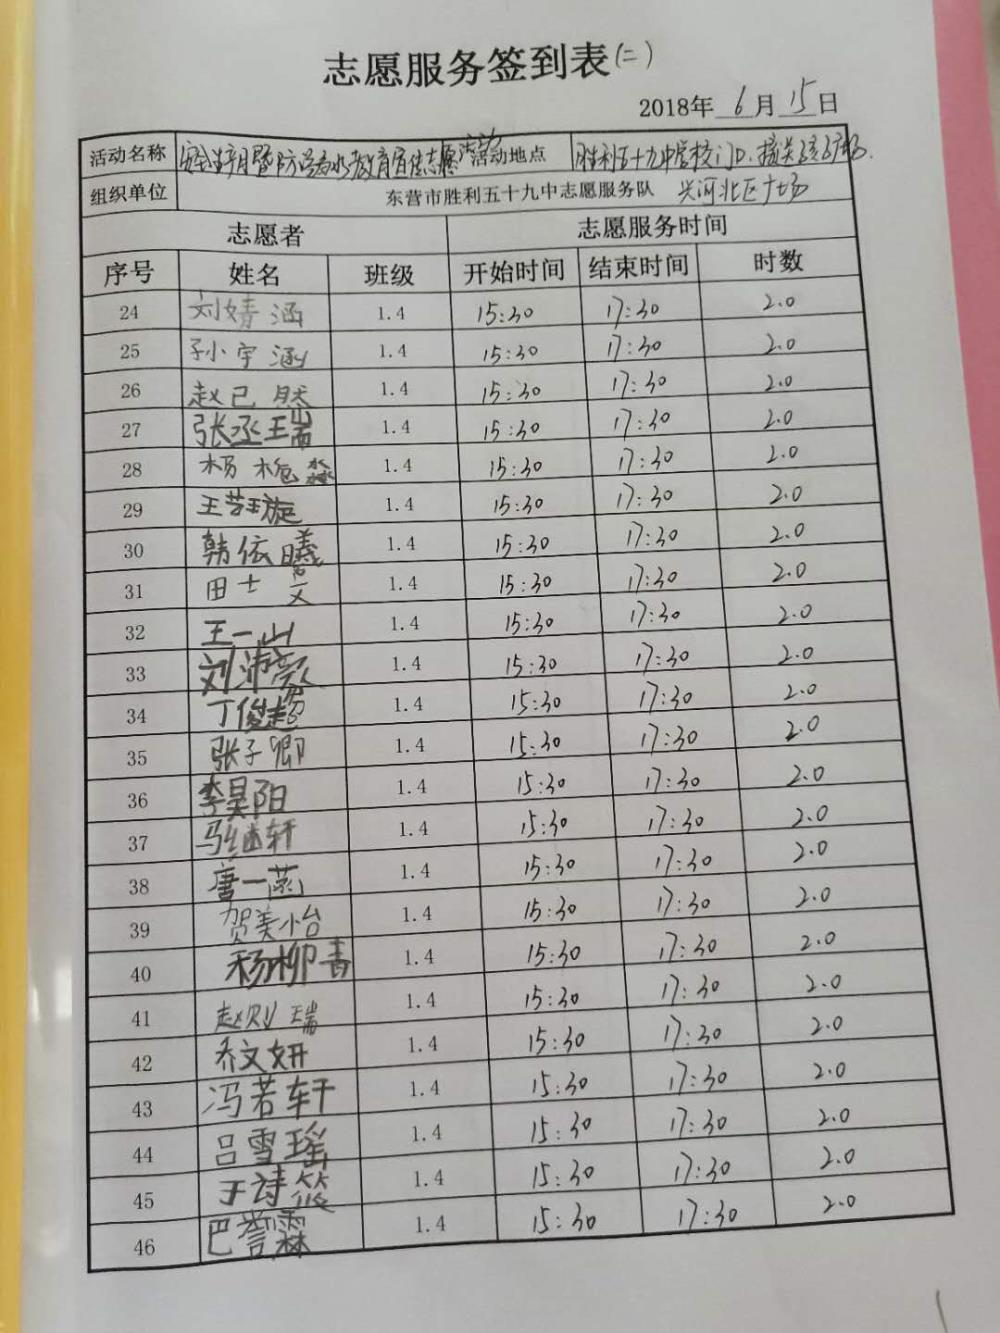 志愿服务签到表(二)
2018年 6 月 15 日
活动名称 安全生产月暨防溺水教育宣传志愿活动 活动地点 胜利五十九中学校门口、
组织单位 东营市胜利五十九中志愿服务队 兴河北区广场
志愿者 志愿服务时间
序号 姓名 班级 开始时间 结束时间 时数
24 刘婧涵 1.4 15:30 17:30 2.0
25 孙小宇涵 1.4 15:30 17:30 2.0
26 赵已然 1.4 15:30 17:30 2.0
27 张丞瑞 1.4 15:30 17:30 2.0
28 杨 淼 1.4 15:30 17:30 2.0
29 王艺璇 1.4 15:30 17:30 2.0
30 韩依曦 1.4 15:30 17:30 2.0
31 田士文 1.4 15:30 17:30 2.0
32 王一山 1.4 15:30 17:30 2.0
33 刘沛 1.4 15:30 17:30 2.0
34 丁俊超 1.4 15:30 17:30 2.0
35 张子卿 1.4 15:30 17:30 2.0
36 李昊阳 1.4 15:30 17:30 2.0
37 马继轩 1.4 15:30 17:30 2.0
38 唐一菡 1.4 15:30 17:30 2.0
39 贺美怡 1.4 15:30 17:30 2.0
40 杨柳青 1.4 15:30 17:30 2.0
41 赵则瑞 1.4 15:30 17:30 2.0
42 乔文妍 1.4 15:30 17:30 2.0
43 冯若轩 1.4 15:30 17:30 2.0
44 吕雪瑶 1.4 15:30 17:30 2.0
45 于诗筱 1.4 15:30 17:30 2.0
46 巴誉霖 1.4 15:30 17:30 2.0